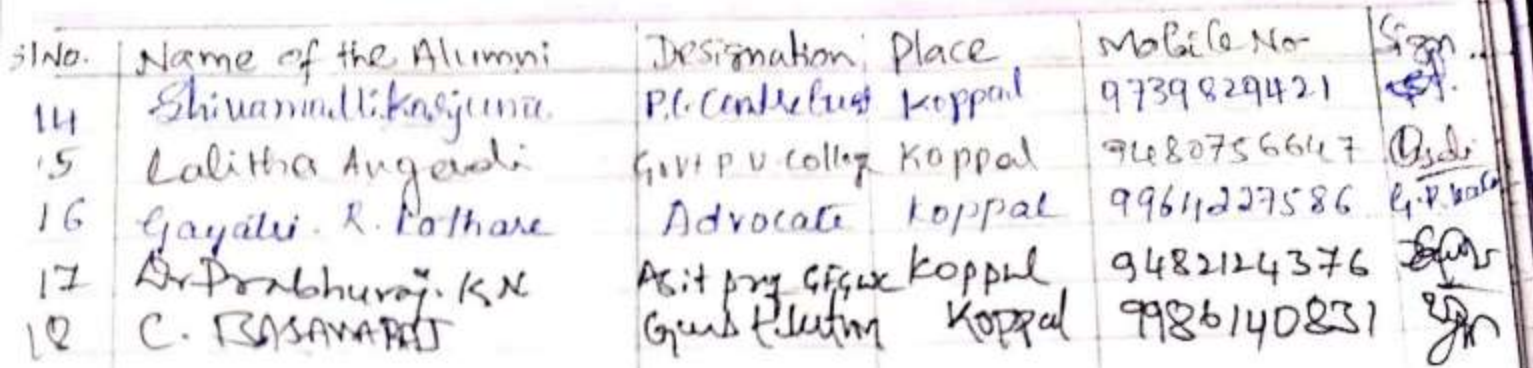 SlNo. Name of the Alumni Designation Place Mobile No Sign
14 Shivamallikarjuna. P.C. Koppal 9739829421
15 Lalitha Angadi Govt P U Colleg Koppal 9480756647
16 Gayatri. R. Pathare Advocate Koppal 9964227586
17 Dr Prabhuraj. K N Asit prg GFGWC Koppal 9482124376
18 C. BASAVARAJ Koppal 9986140831